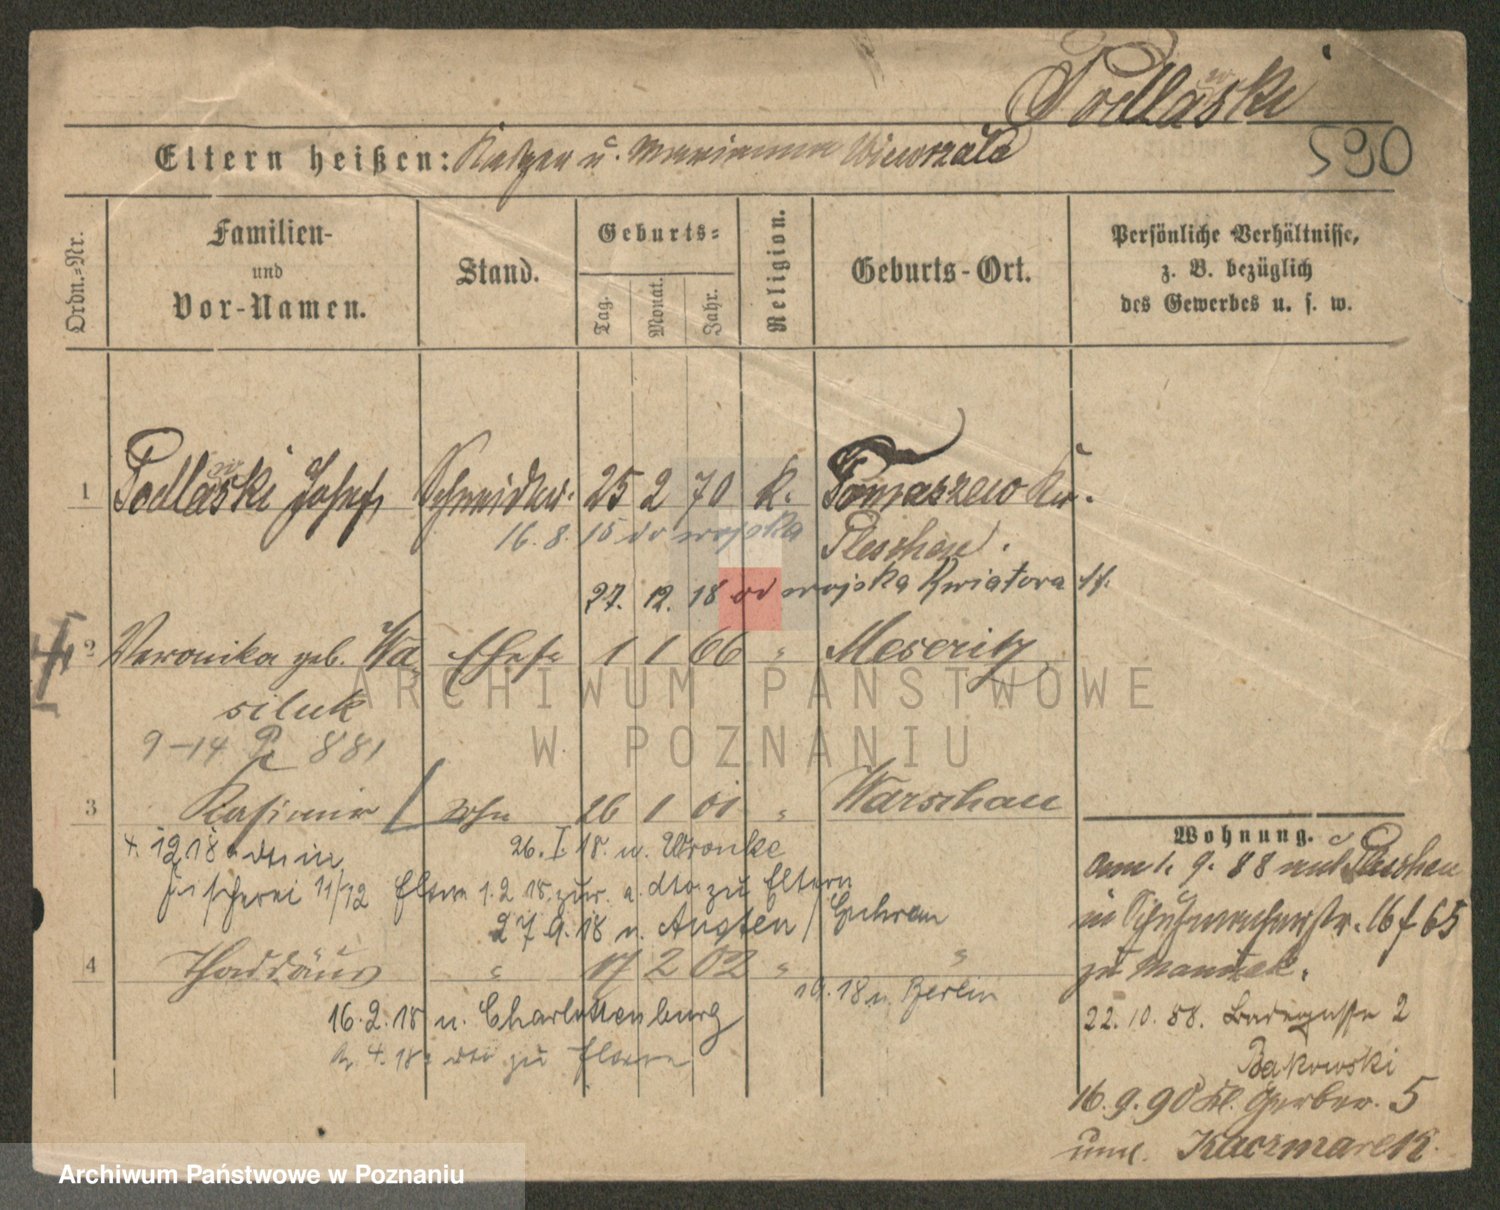 Podlaski
Eltern heißen: u. Marianna Wiewszala
590
Ordn.-Nr.
Familien-
und
Vor-Namen.
Stand.
Geburts-
Tag.
Monat.
Jahr.
Religion.
Geburts-Ort.
Persönliche Verhältnisse,
z. B. bezüglich
des Gewerbes u. s. w.
1 Podlaski Josef Schneider. 25 2 70 k. Tomaszewo Kr.
16. 8. 15 do wojska Pleschen.
27. 12. 18 od wojska Kwiatowa 11.
2 Veronika geb. Wa Ehefr 1 1 66 " Meseritz
siluk
9-14 881
ARCHIWUM PAŃSTWOWE
W POZNANIU
3 Kasimir Sohn 26 1 01 " Warschau
Wohnung.
26. I. 18. n. Wronke
am 1. 9. 88 Pleschen
11/12 Eltern 1. 2 18. zur. a. dto zu Eltern
27 9. 18 n. Augten / Guhren
in Schuhmacherstr. 16 f 65
4 Thaddäus " 17 2 02 " "
zu
18 n. Berlin
16. 2. 18 n. Charlottenburg
22. 10. 88. 2
4. 18. dto zu Eltern
Bakowski
16. 9. 90 Kl. Gerber. 5
Kaczmarek.
Archiwum Państwowe w Poznaniu